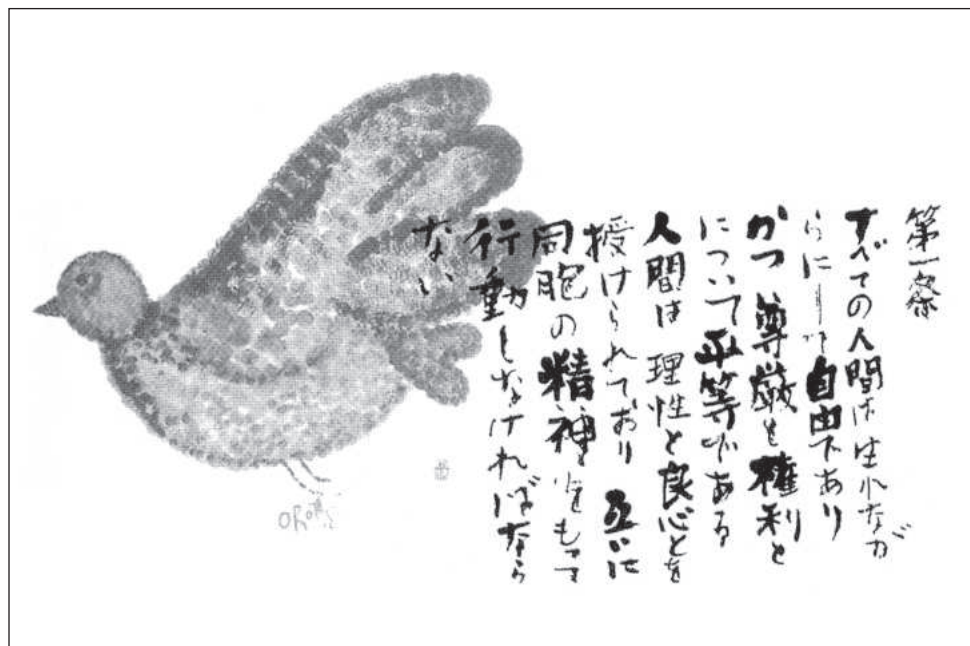 第一条
すべての人間は生れなが
らにして自由であり
かつ 尊厳と権利と
について平等である
人間は 理性と良心とを
授けられており 互いに
同胞の精神をもって
行動しなければなら
ない